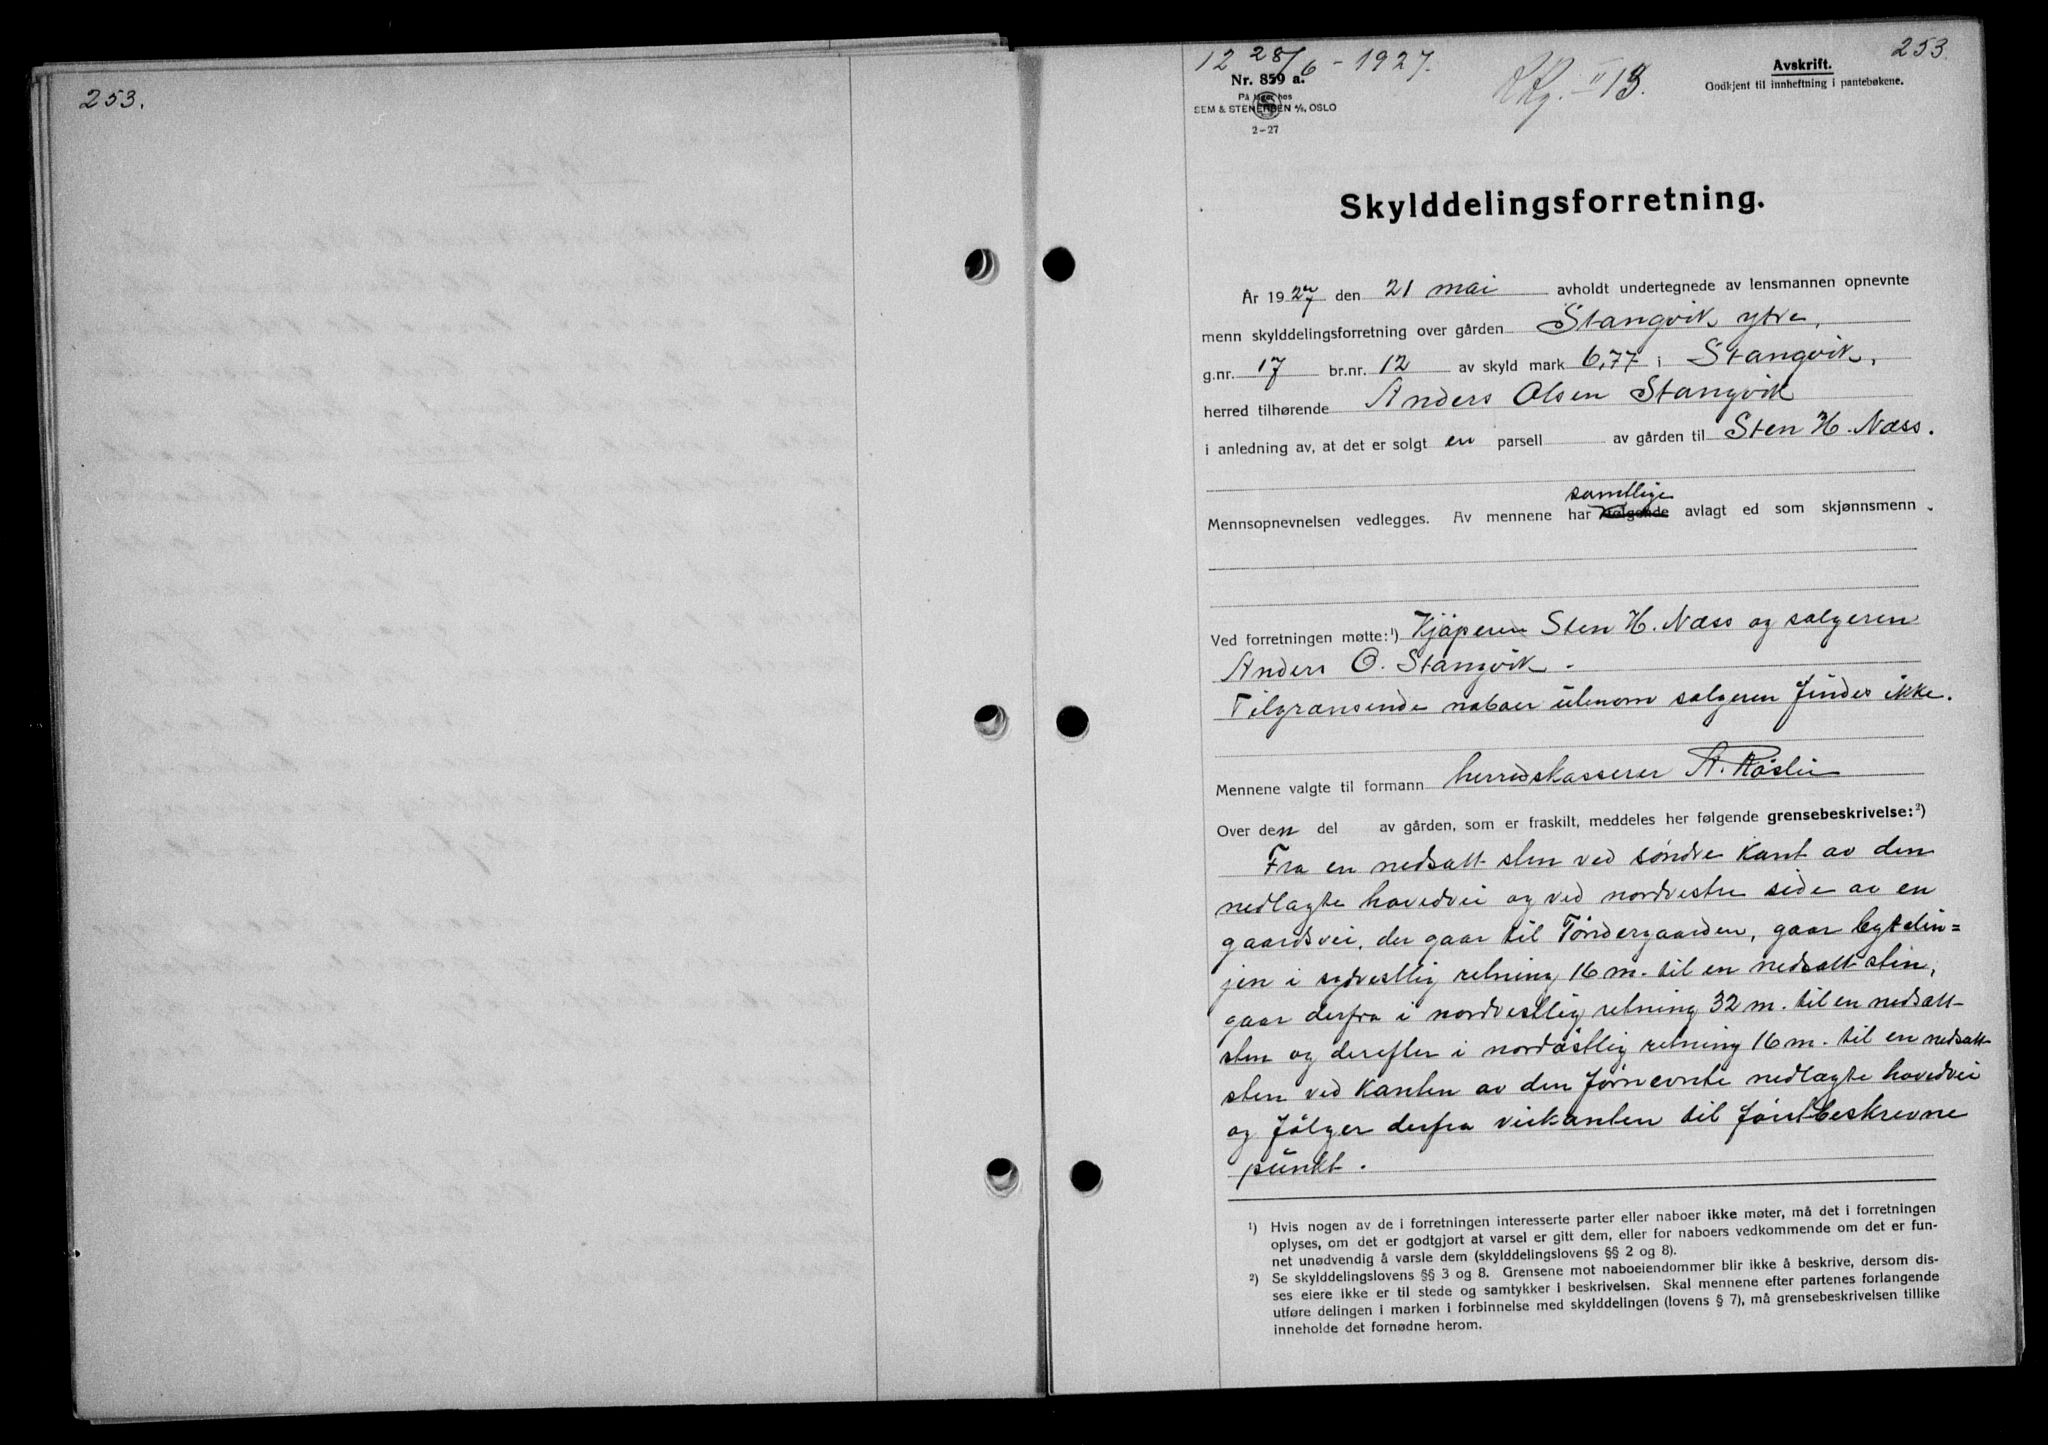 253.
12 28/6 - 1927.
253.
Nr. 859 a.
På lager hos
SEM & STENERSEN A/S, OSLO
2-27
II 13.
Avskrift.
Godkjent til innheftning i pantebøkene.
Skylddelingsforretning.
År 1927 den 21 mai avholdt undertegnede av lensmannen opnevnte
menn skylddelingsforretning over gården Stangvik ytre,
g.nr. 17 br.nr. 12 av skyld mark 6,77 i Stangvik,
herred tilhørende Anders Olsen Stangvik
i anledning av, at det er solgt en parsell av gården til Sten H. Næss.
samtlige
Mennsopnevnelsen vedlegges. Av mennene har følgende avlagt ed som skjønnsmenn.
Ved forretningen møtte:¹) Kjøperen Sten H. Næss og sælgeren
Anders O. Stangvik.
Tilgrænsende naboer utenom sælgeren findes ikke.
Mennene valgte til formann herredskasserer A. Røslie
Over den del av gården, som er fraskilt, meddeles her følgende grensebeskrivelse:²)
Fra en nedsatt sten ved søndre kant av den
nedlagte hovedvei og ved nordvestre side av en
gaardsvei, der gaar til Tøndergaarden, gaar bytelin=
jen i sydvestlig retning 16 m. til en nedsatt sten,
gaar derfra i nordvestlig retning 32 m. til en nedsatt
sten og derefter i nordøstlig retning 16 m. til en nedsatt
sten ved kanten av den førnevnte nedlagte hovedvei
og følger derfra veikanten til førstbeskrevne
punkt.
¹) Hvis nogen av de i forretningen interesserte parter eller naboer ikke møter, må det i forretningen
oplyses, om det er godtgjort at varsel er gitt dem, eller for naboers vedkommende om det er fun-
net unødvendig å varsle dem (skylddelingslovens §§ 2 og 8).
²) Se skylddelingslovens §§ 3 og 8. Grensene mot naboeiendommer blir ikke å beskrive, dersom dis-
ses eiere ikke er til stede og samtykker i beskrivelsen. Skal mennene efter partenes forlangende
utføre delingen i marken i forbinnelse med skylddelingen (lovens § 7), må grensebeskrivelsen tillike
inneholde det fornødne herom.